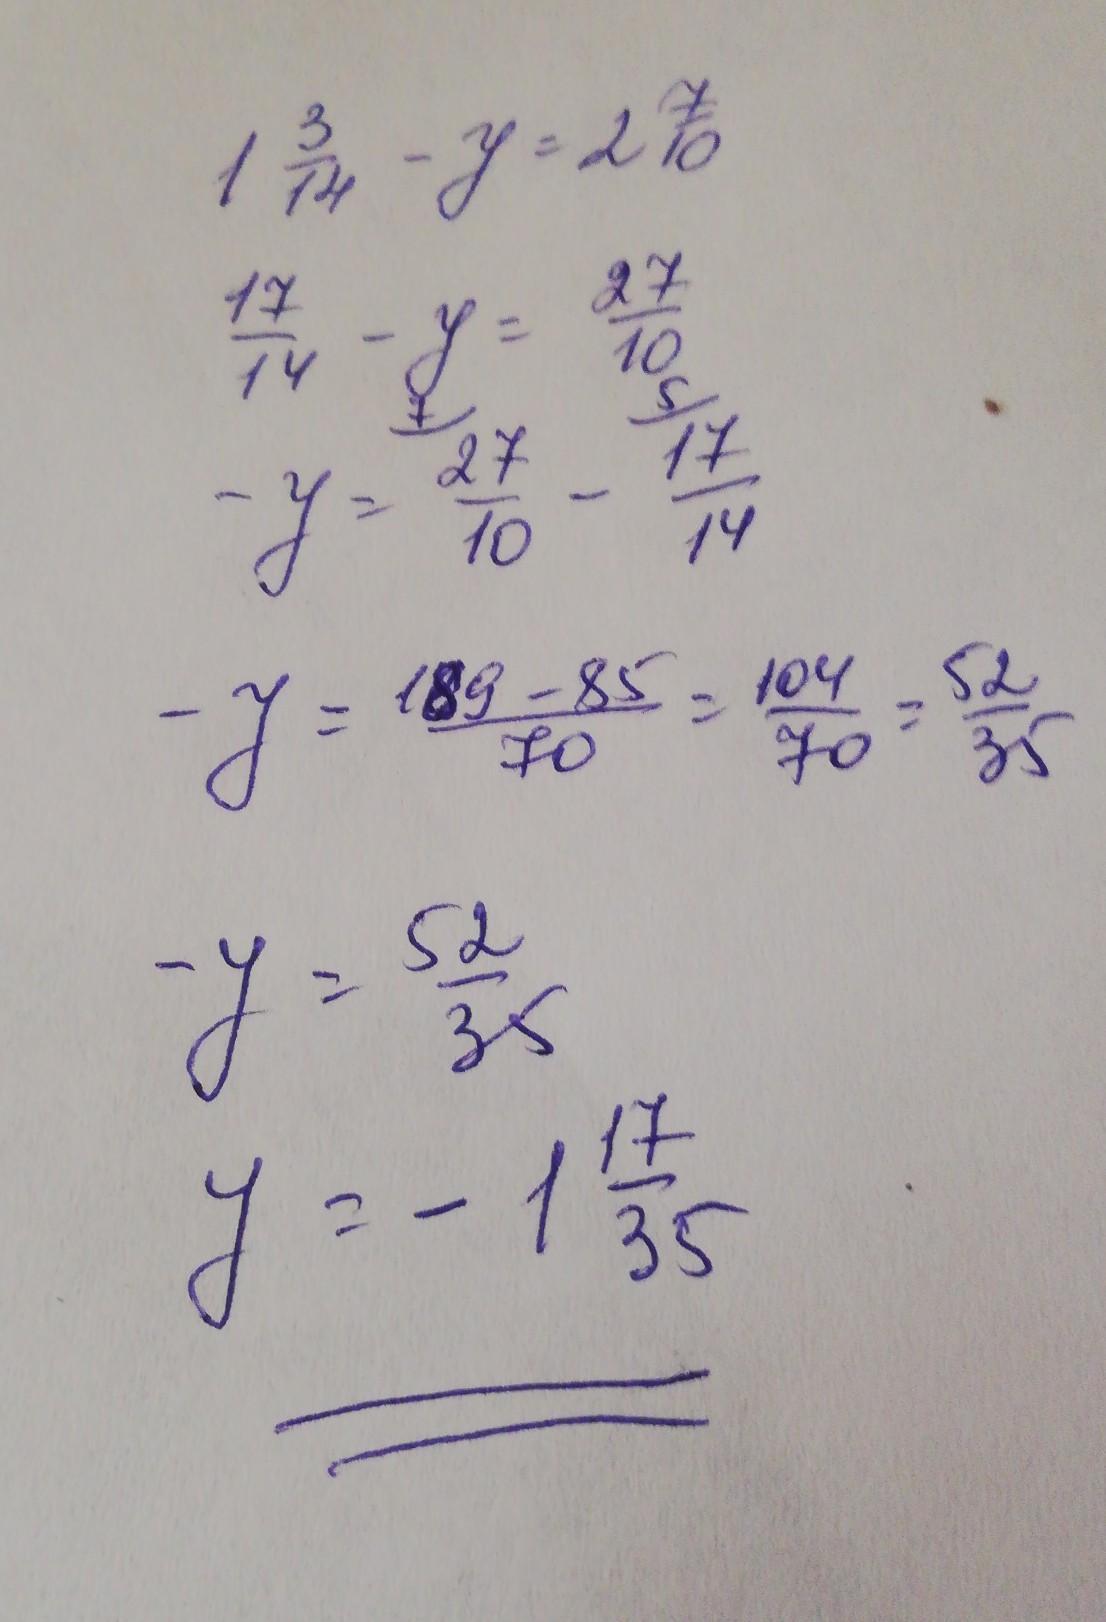 1 3/14 - y = 2 7/10
17/14 - y = 27/10
7/ 5/
- y = 27/10 - 17/14
- y = 189 - 85/70 = 104/70 = 52/35
- y = 52/35
y = - 1 17/35